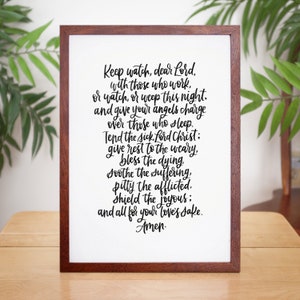 Keep watch, dear Lord,
with those who work,
or watch, or weep this night,
and give your angels charge
over those who sleep.
Tend the sick, Lord Christ;
give rest to the weary,
bless the dying,
soothe the suffering,
pity the afflicted,
shield the joyous;
and all for your love's sake.
Amen.